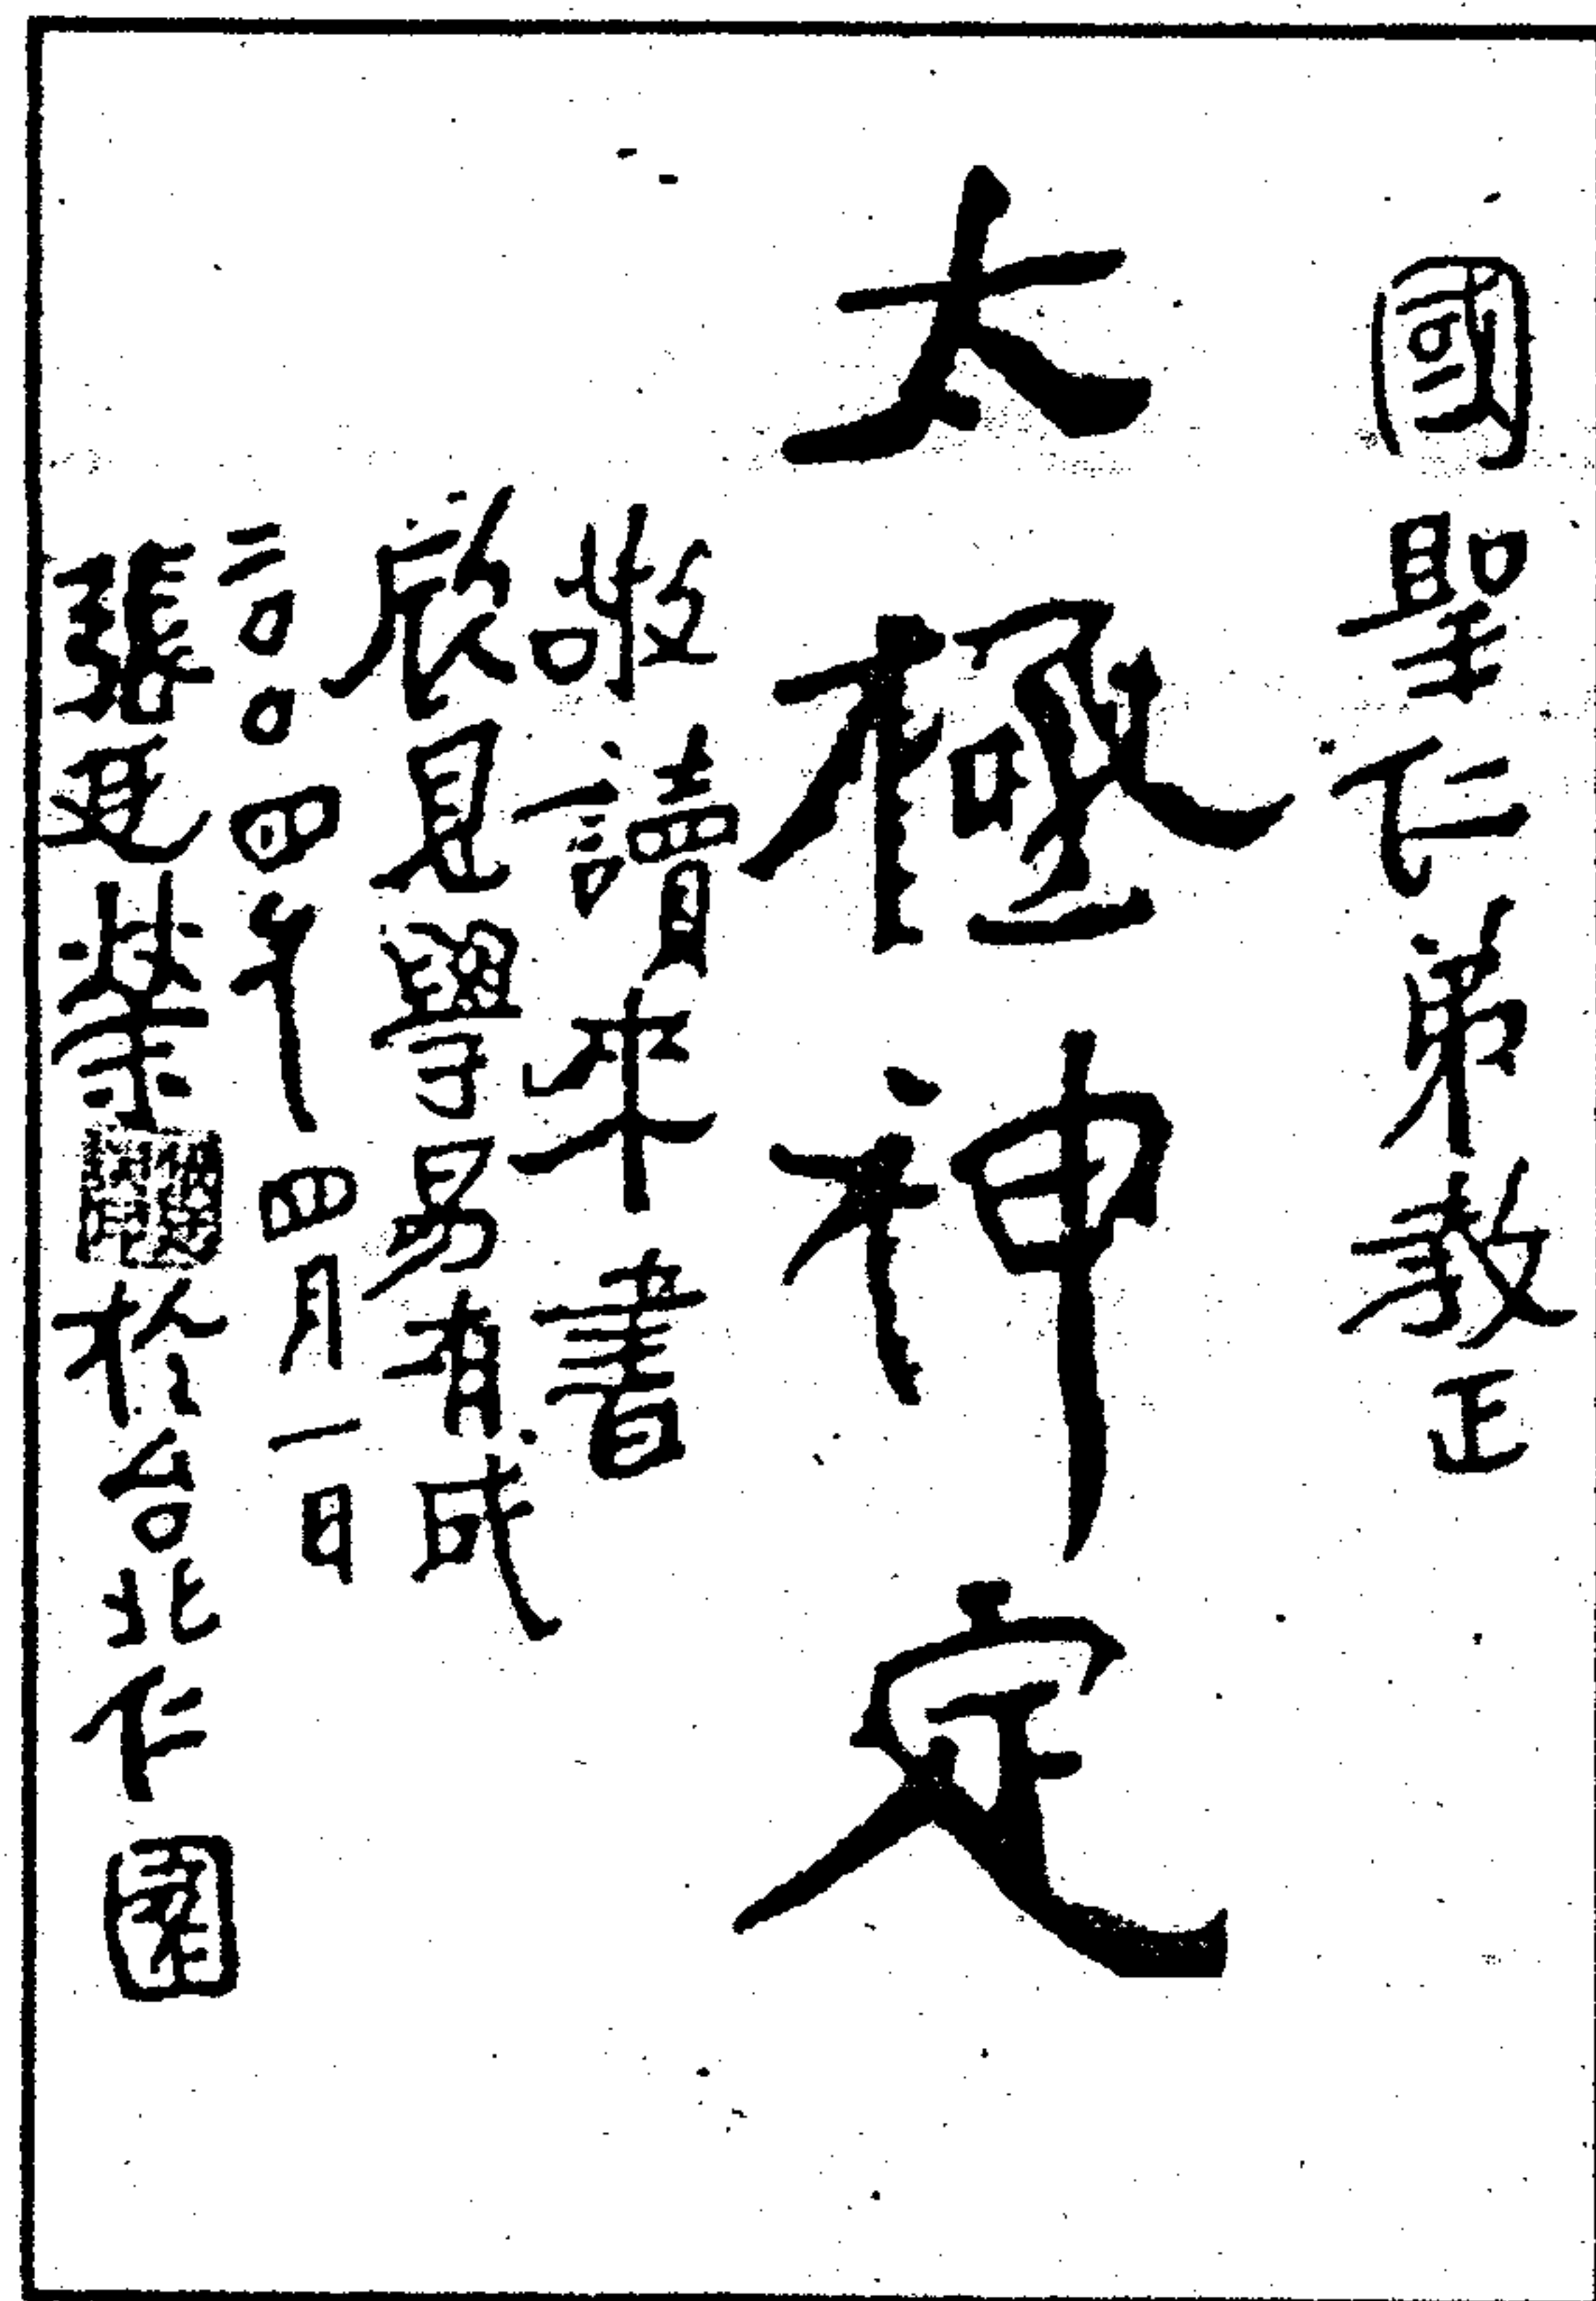 國聖仁弟教正
太極神定
敬讀來書
欣見學易有成
二〇〇四年四月一日
張廷榮於台北作